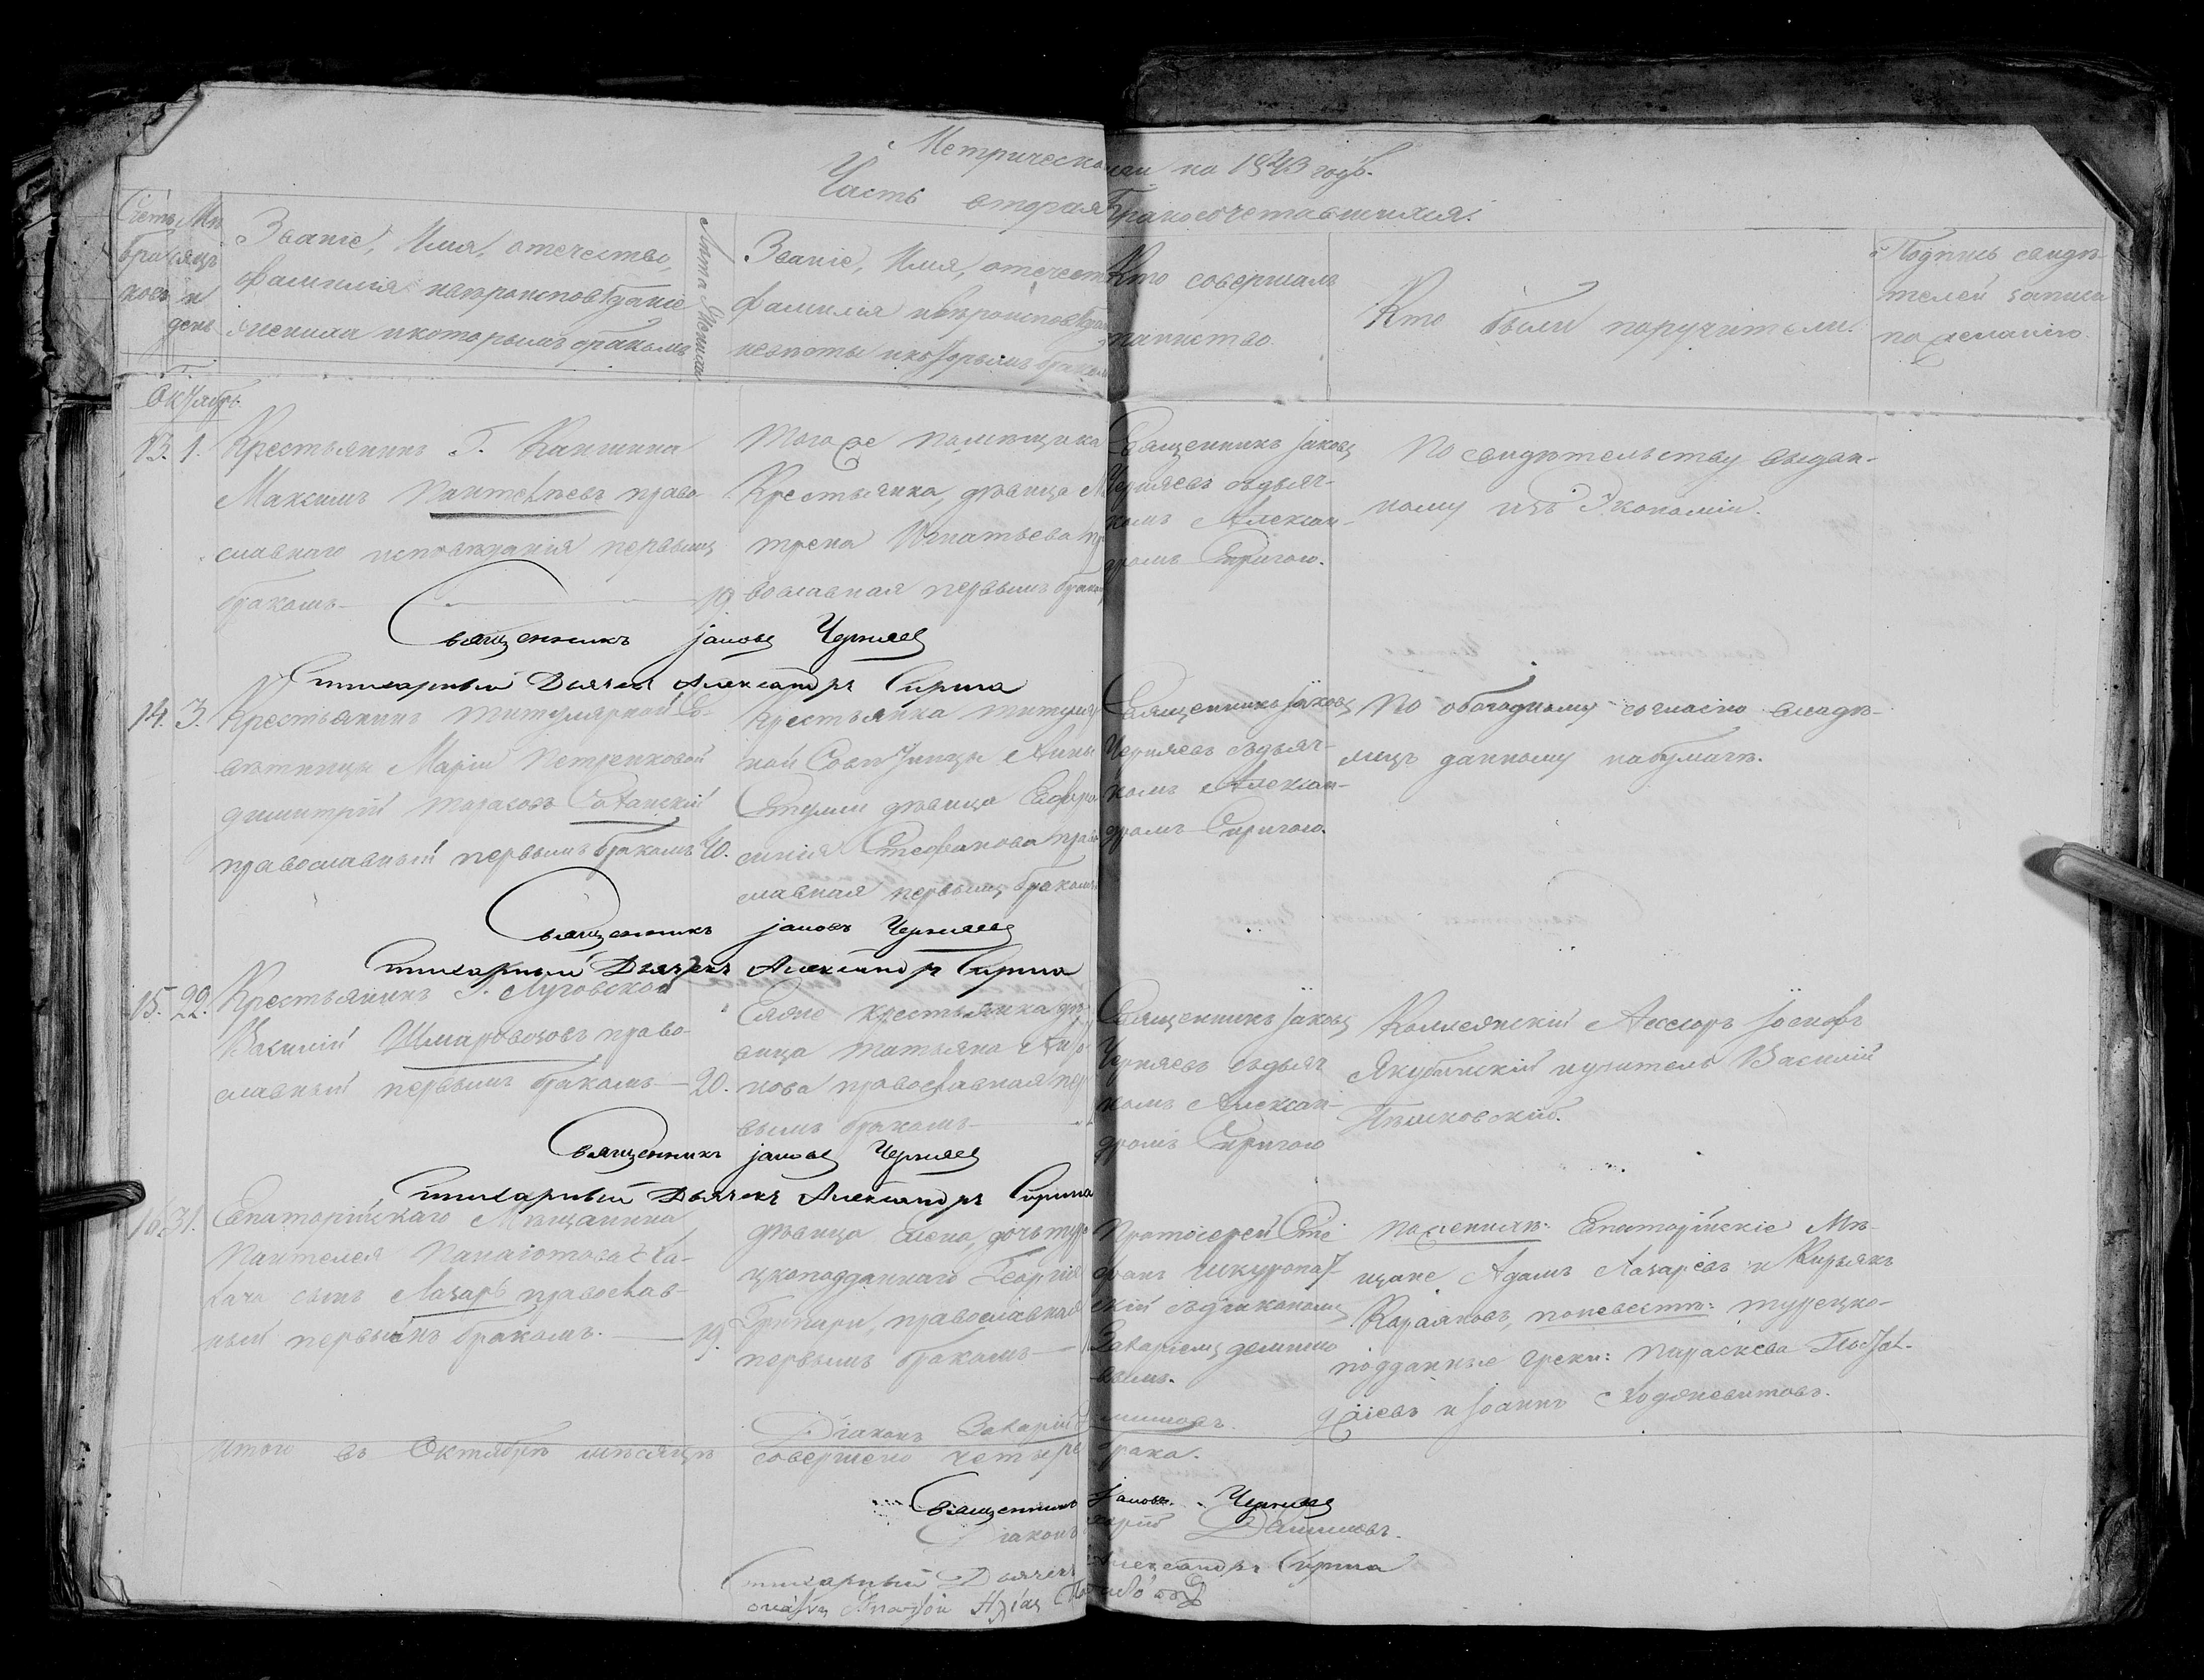 Метрической на 1843 годъ.
Часть вторая бракосочетавшихся.
Счетъ браковъ
Мѣсяцъ и день
Званіе, Имя, отечество,
фамилія и вѣроисповѣданіе
жениха и которымъ бракомъ
Лѣта Жениха
Званіе, Имя, отечест
фамилія и вѣроисповѣдан
невѣсты и которымъ бракомъ
Кто совершалъ
таинство
Кто были поручители.
Подпись свидѣ-
телей записи
по желанію.
Октябрь.
13. 1.
Крестьянинъ Г. Каншина
Максимъ Пантелѣевъ право-
славнаго исповѣданія первымъ
бракомъ
19.
того же помѣщика
Крестьянка, дѣвица М
трена Игнатьева пра
вославная первымъ бракомъ
Священникъ Іаковъ
Черняевъ съ дьяч-
комъ Алексан-
дромъ Спригою.
По свидѣтельству выдан-
ному изъ Экономіи.
Священникъ Іаковъ Черняевъ
Стихарный Дьячекъ Александръ
14. 3.
Крестьянинъ титулярной Со-
вѣтницы Маріи Петренковой
Димитрій Тарасовъ
православный первымъ бракомъ
Крестьянка титуляр
ной Совѣтницы Анны
дѣвица Евфро
синія Стефанова право
славная первымъ бракомъ
Священникъ Іаковъ
Черняевъ съ дьяч-
комъ Алексан-
дромъ Спригою.
По обоюдному согласію владѣ-
лицъ данному на бумагѣ.
Священникъ Іаковъ Черняевъ
Стихарный Дьячекъ Александръ
15. 22.
Крестьянинъ Г. Луговской
Василій право-
славный первымъ бракомъ
20.
Еяже крестьянка дѣ-
вица Татьяна
нова православная пер
вымъ бракомъ
Священникъ Іаковъ
Черняевъ съ дьяч
комъ Алексан-
дромъ Спригою
Коллежскій Ассесоръ Іосифъ
Якубинскій и учитель Василій
Священникъ Іаковъ Черняевъ
Стихарный Дьячекъ Александръ
16. 31.
Евпаторійскаго Мѣщанина
Пантелея Панаіотова
сынъ Лазарь православ-
ный первымъ бракомъ.
19.
дѣвица Елена, дочь туре
цкоподданнаго Георгія
православная
первымъ бракомъ
Протоіерей Сте
фанъ Шкуропат-
скій съ діакономъ
Захаріемъ
По женихѣ: Евпаторійскіе Мѣ-
щане Адамъ Лазаревъ и Кирьякъ
Караяновъ, по невѣстѣ: турецко-
подданные греки: Параскева
и Іоаннъ
Діаконъ Захарій
Итого въ Октябрѣ мѣсяцѣ совершено четыре брака.
Священникъ Іаковъ Черняевъ
Діаконъ
Стихарный Дьячекъ Александръ